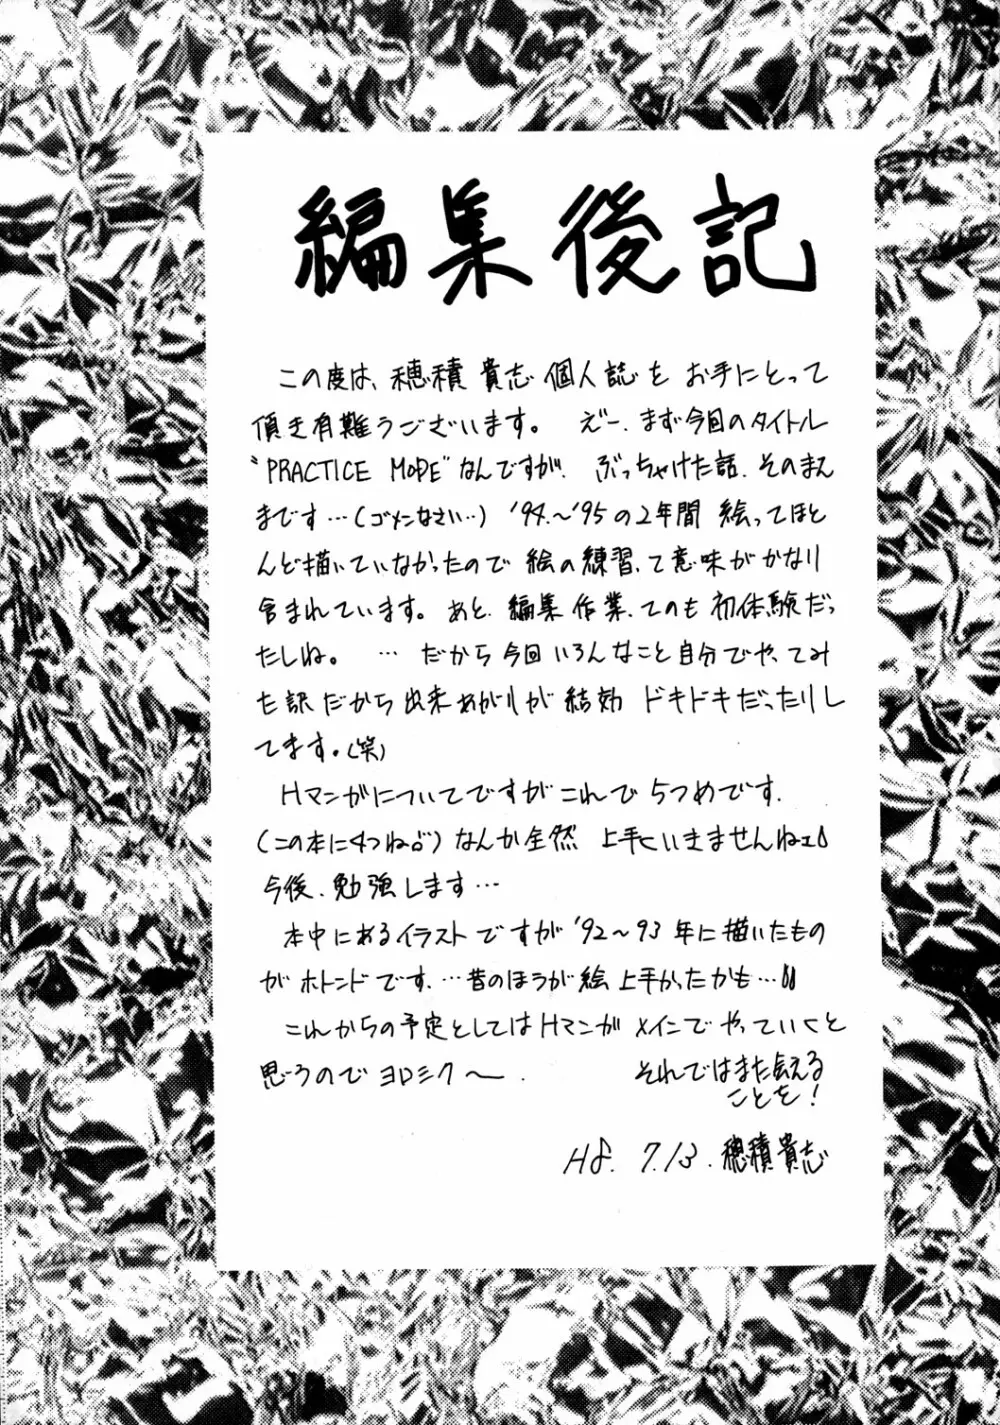 編集後記
この度は、穂積貴志個人誌をお手にとって
頂き有難うございます。 えー、まず今回のタイトル
"PRACTICE MODE"なんですが、ぶっちゃけた話、そのまん
まです…(ゴメンなさい…) '94.〜'95の2年間 絵ってほと
んど描いていなかったので 絵の練習、て意味がかなり
含まれています。あと、編集作業、てのも初体験だっ
たしね。 … だから今回いろんなこと自分でや、てみ
た訳だから出来あがりが結効 ドキドキだったりし
てます。(笑)
Hマンガについてですがこれで5つめです.
(この本に4つね) なんか全然 上手くいきませんねェ
今後、勉強します…
本中にあるイラストですが'92〜93年に描いたもの
がホトンドです. …昔のほうが絵上手かったかも…
これからの予定としてはHマンガメインでやっていくと
思うのでヨロシク〜.
それではまた会える
ことを!
H8. 7.13. 穂積貴志